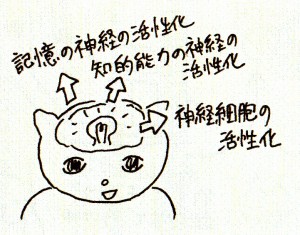 記憶の神経の活性化
知的能力の神経の
活性化
神経細胞の
活性化